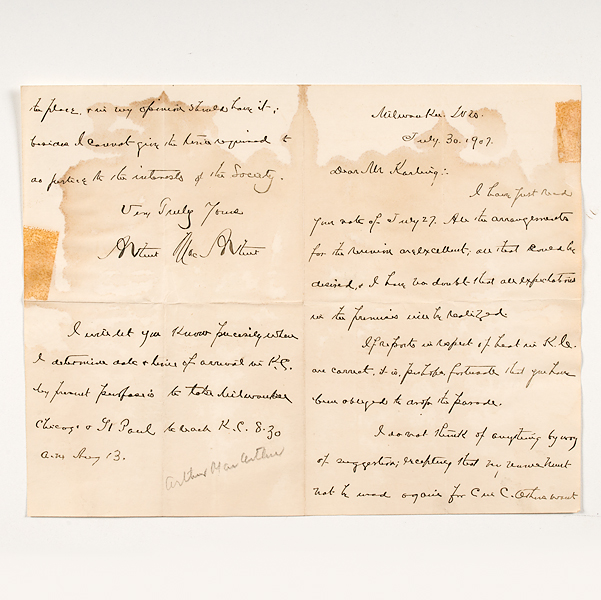 Milwaukee. Wis.
July. 30. 1907.
Dear Mr Karling:.
I have just read
your note of July 27. All the arrangements
for the reunion are excellent; all that could be
desired, & I have no doubt that all expectations
in the premises will be realized.
If reports in respect of heat in K.C.
are correct, it is, perhaps, fortunate that you have
been obliged to drop the parade.
I do not think of anything by way
of suggestion; excepting that my name must
not be used again for C in C. Others want
the place, & in my opinion should have it;
besides I cannot give the time required to
do justice to the interests of the Society.
Very Truly Yours
Arthur MacArthur
I will let you know precisely when
I determine date & hour of arrival in K.C.
My present purpose is to take Milwaukee
Chicago & St Paul to reach K.C. 8.30
a.m. Aug 13.
Arthur MacArthur